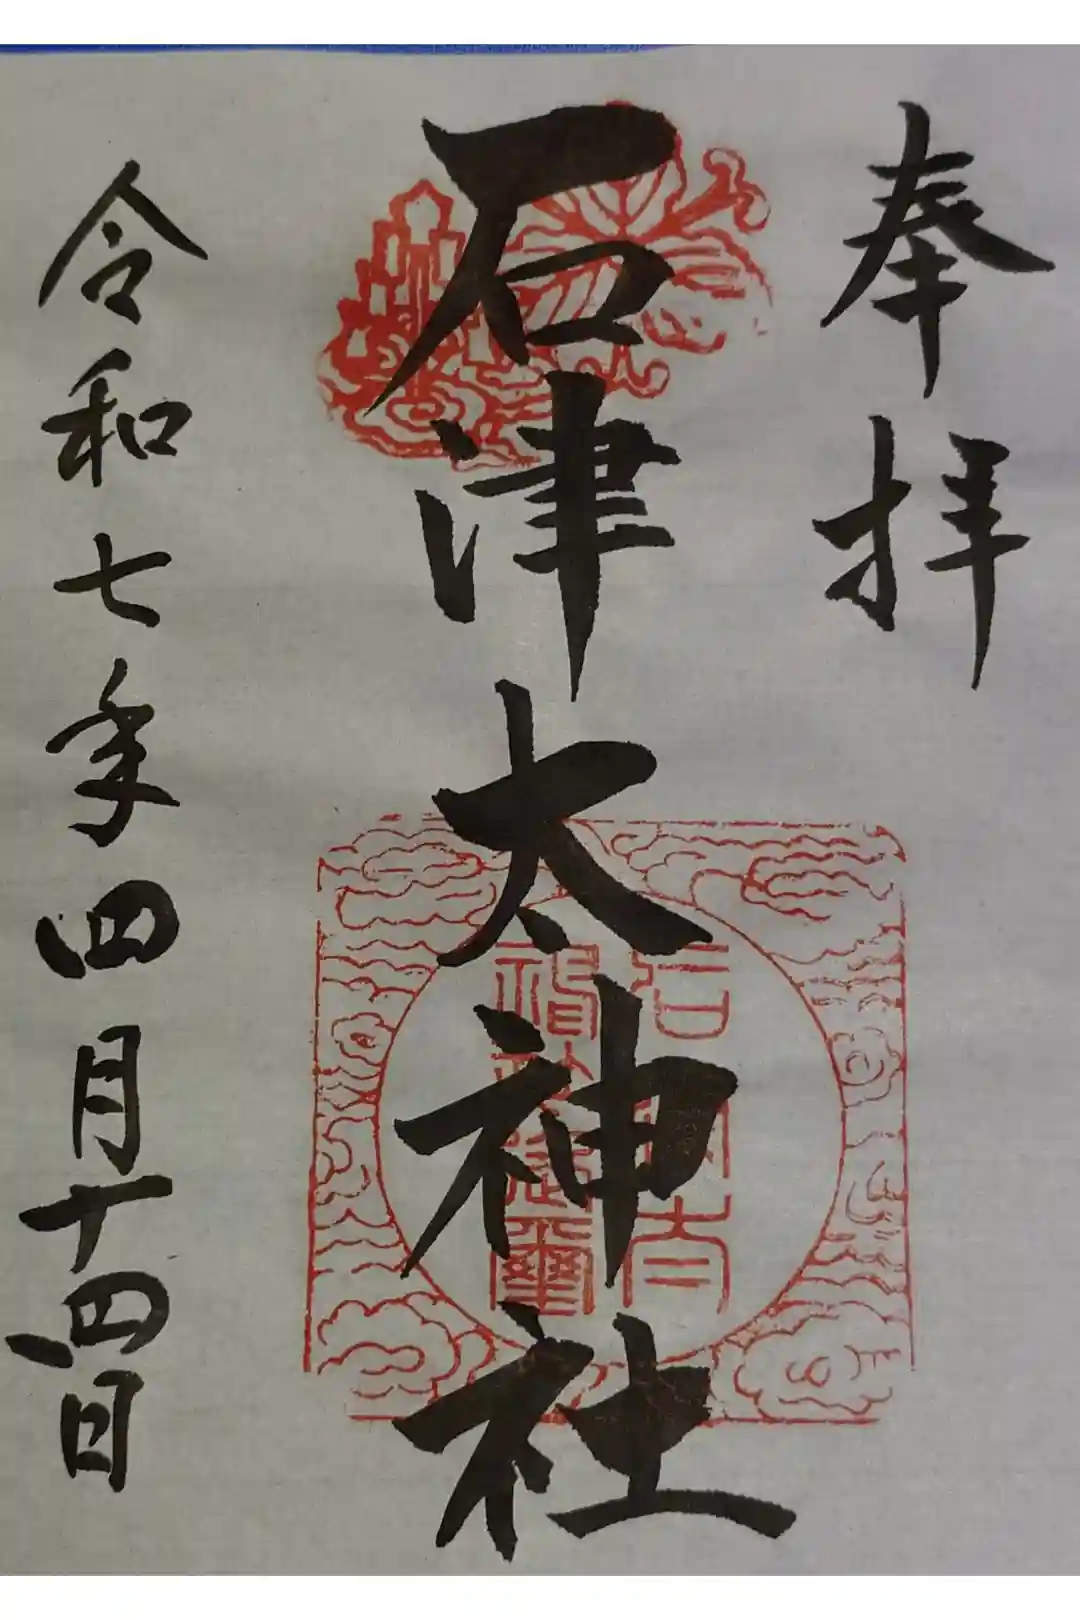 奉拝
石津太神社
令和七年四月十四日